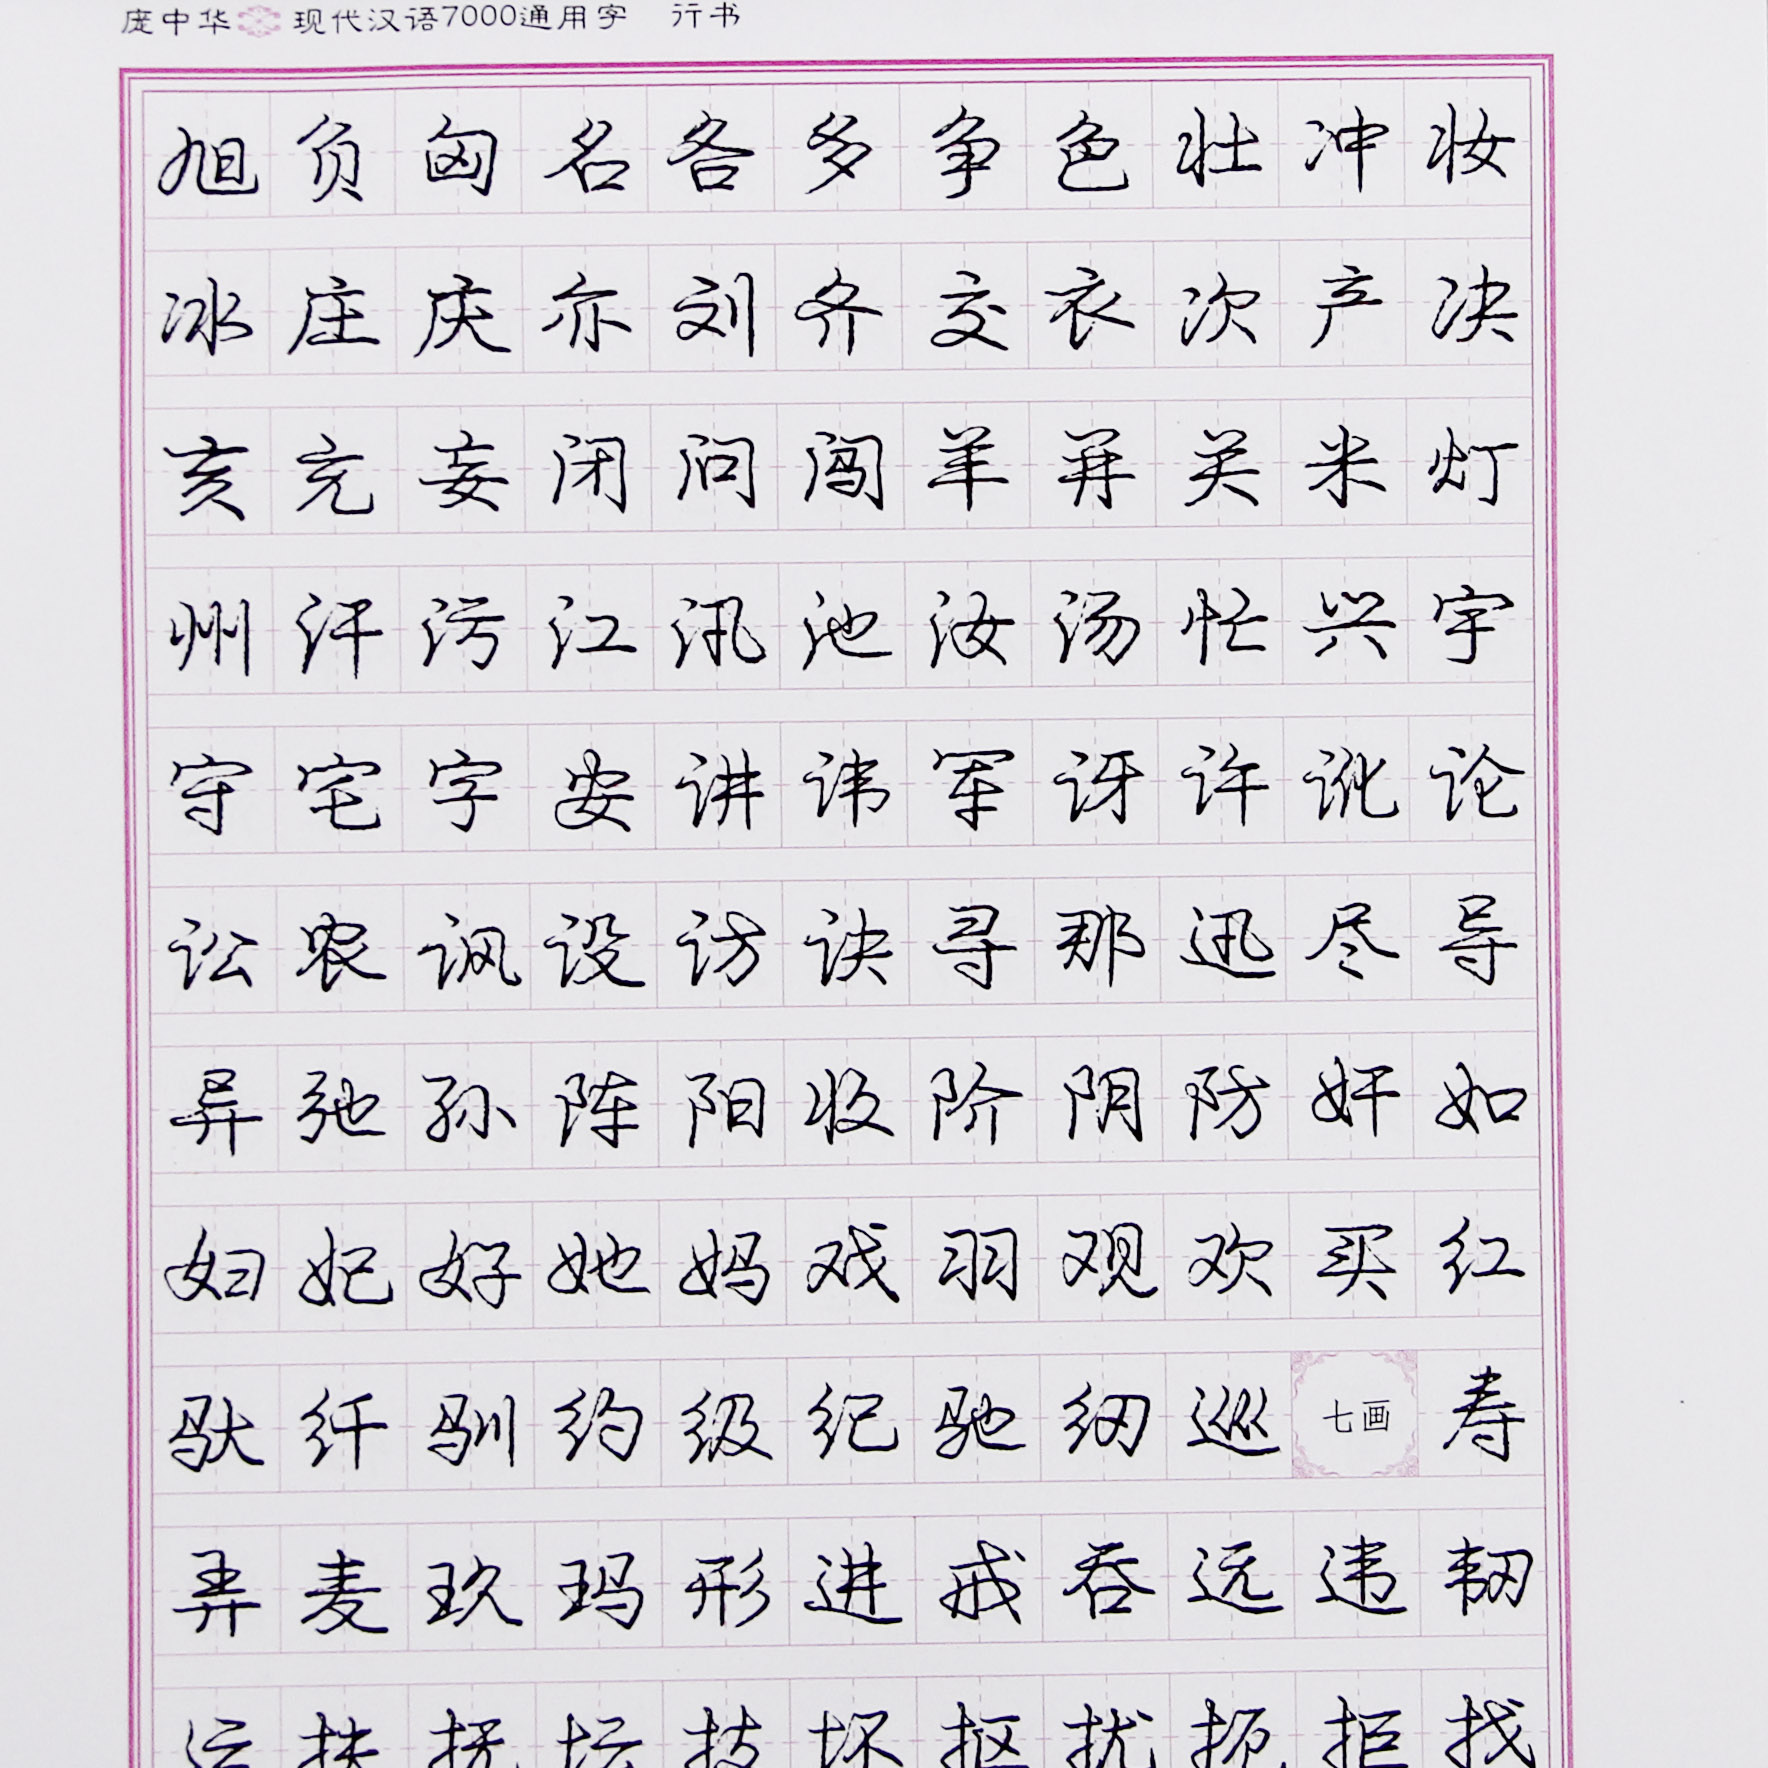 庞中华 现代汉语7000通用字 行书
旭负匈名各多争色壮冲妆
冰庄庆亦刘齐交衣次产决
亥充妄闭问闯羊并关米灯
州汗污江汛池汝汤忙兴宇
守宅字安讲讳军讶许讹论
讼农讽设访诀寻那迅尽导
异弛孙阵阳收阶阴防奸如
妇妃好她妈戏羽观欢买红
驮纤驯约级纪驰纫巡七画寿
弄麦玖玛形进戒吞远违韧
运扶抚坛技坏抠扰扼拒找